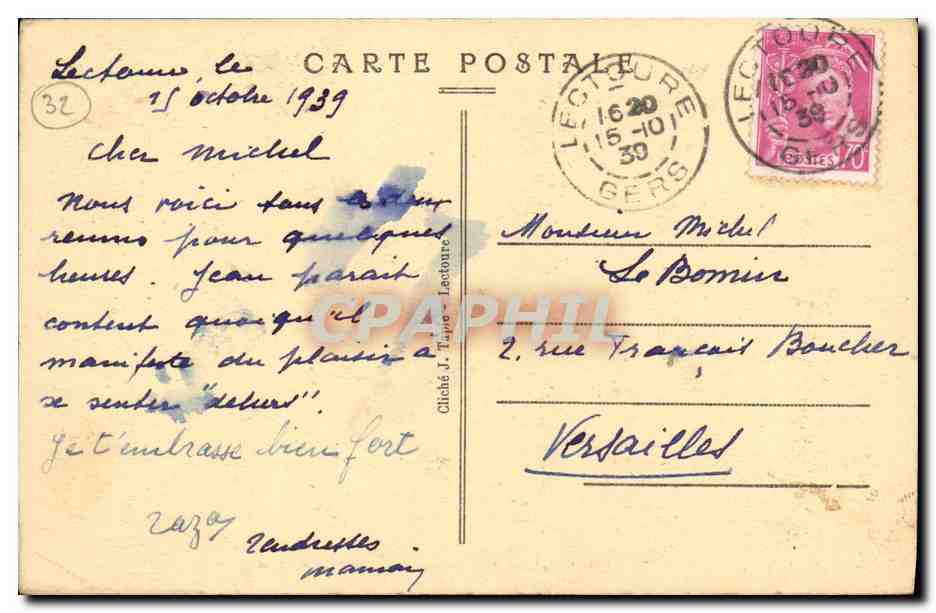 CARTE POSTALE
Lectoure, le
15 octobre 1939
32
Cher Michel
Nous voici tous deux
réunis pour quelques
heures. Jean parait
content quoiqu'il
manifeste du plaisir à
se sentir "dehors".
Je t'embrasse bien fort
Tendresses
maman
Cliché J. Tapie - Lectoure
LECTOURE
16 20
15-10
39
GERS
LECTOURE
16 20
15-10
39
GERS
POSTES 70
Monsieur Michel
Le Bomin
2, rue François Boucher
Versailles
CPAPHIL